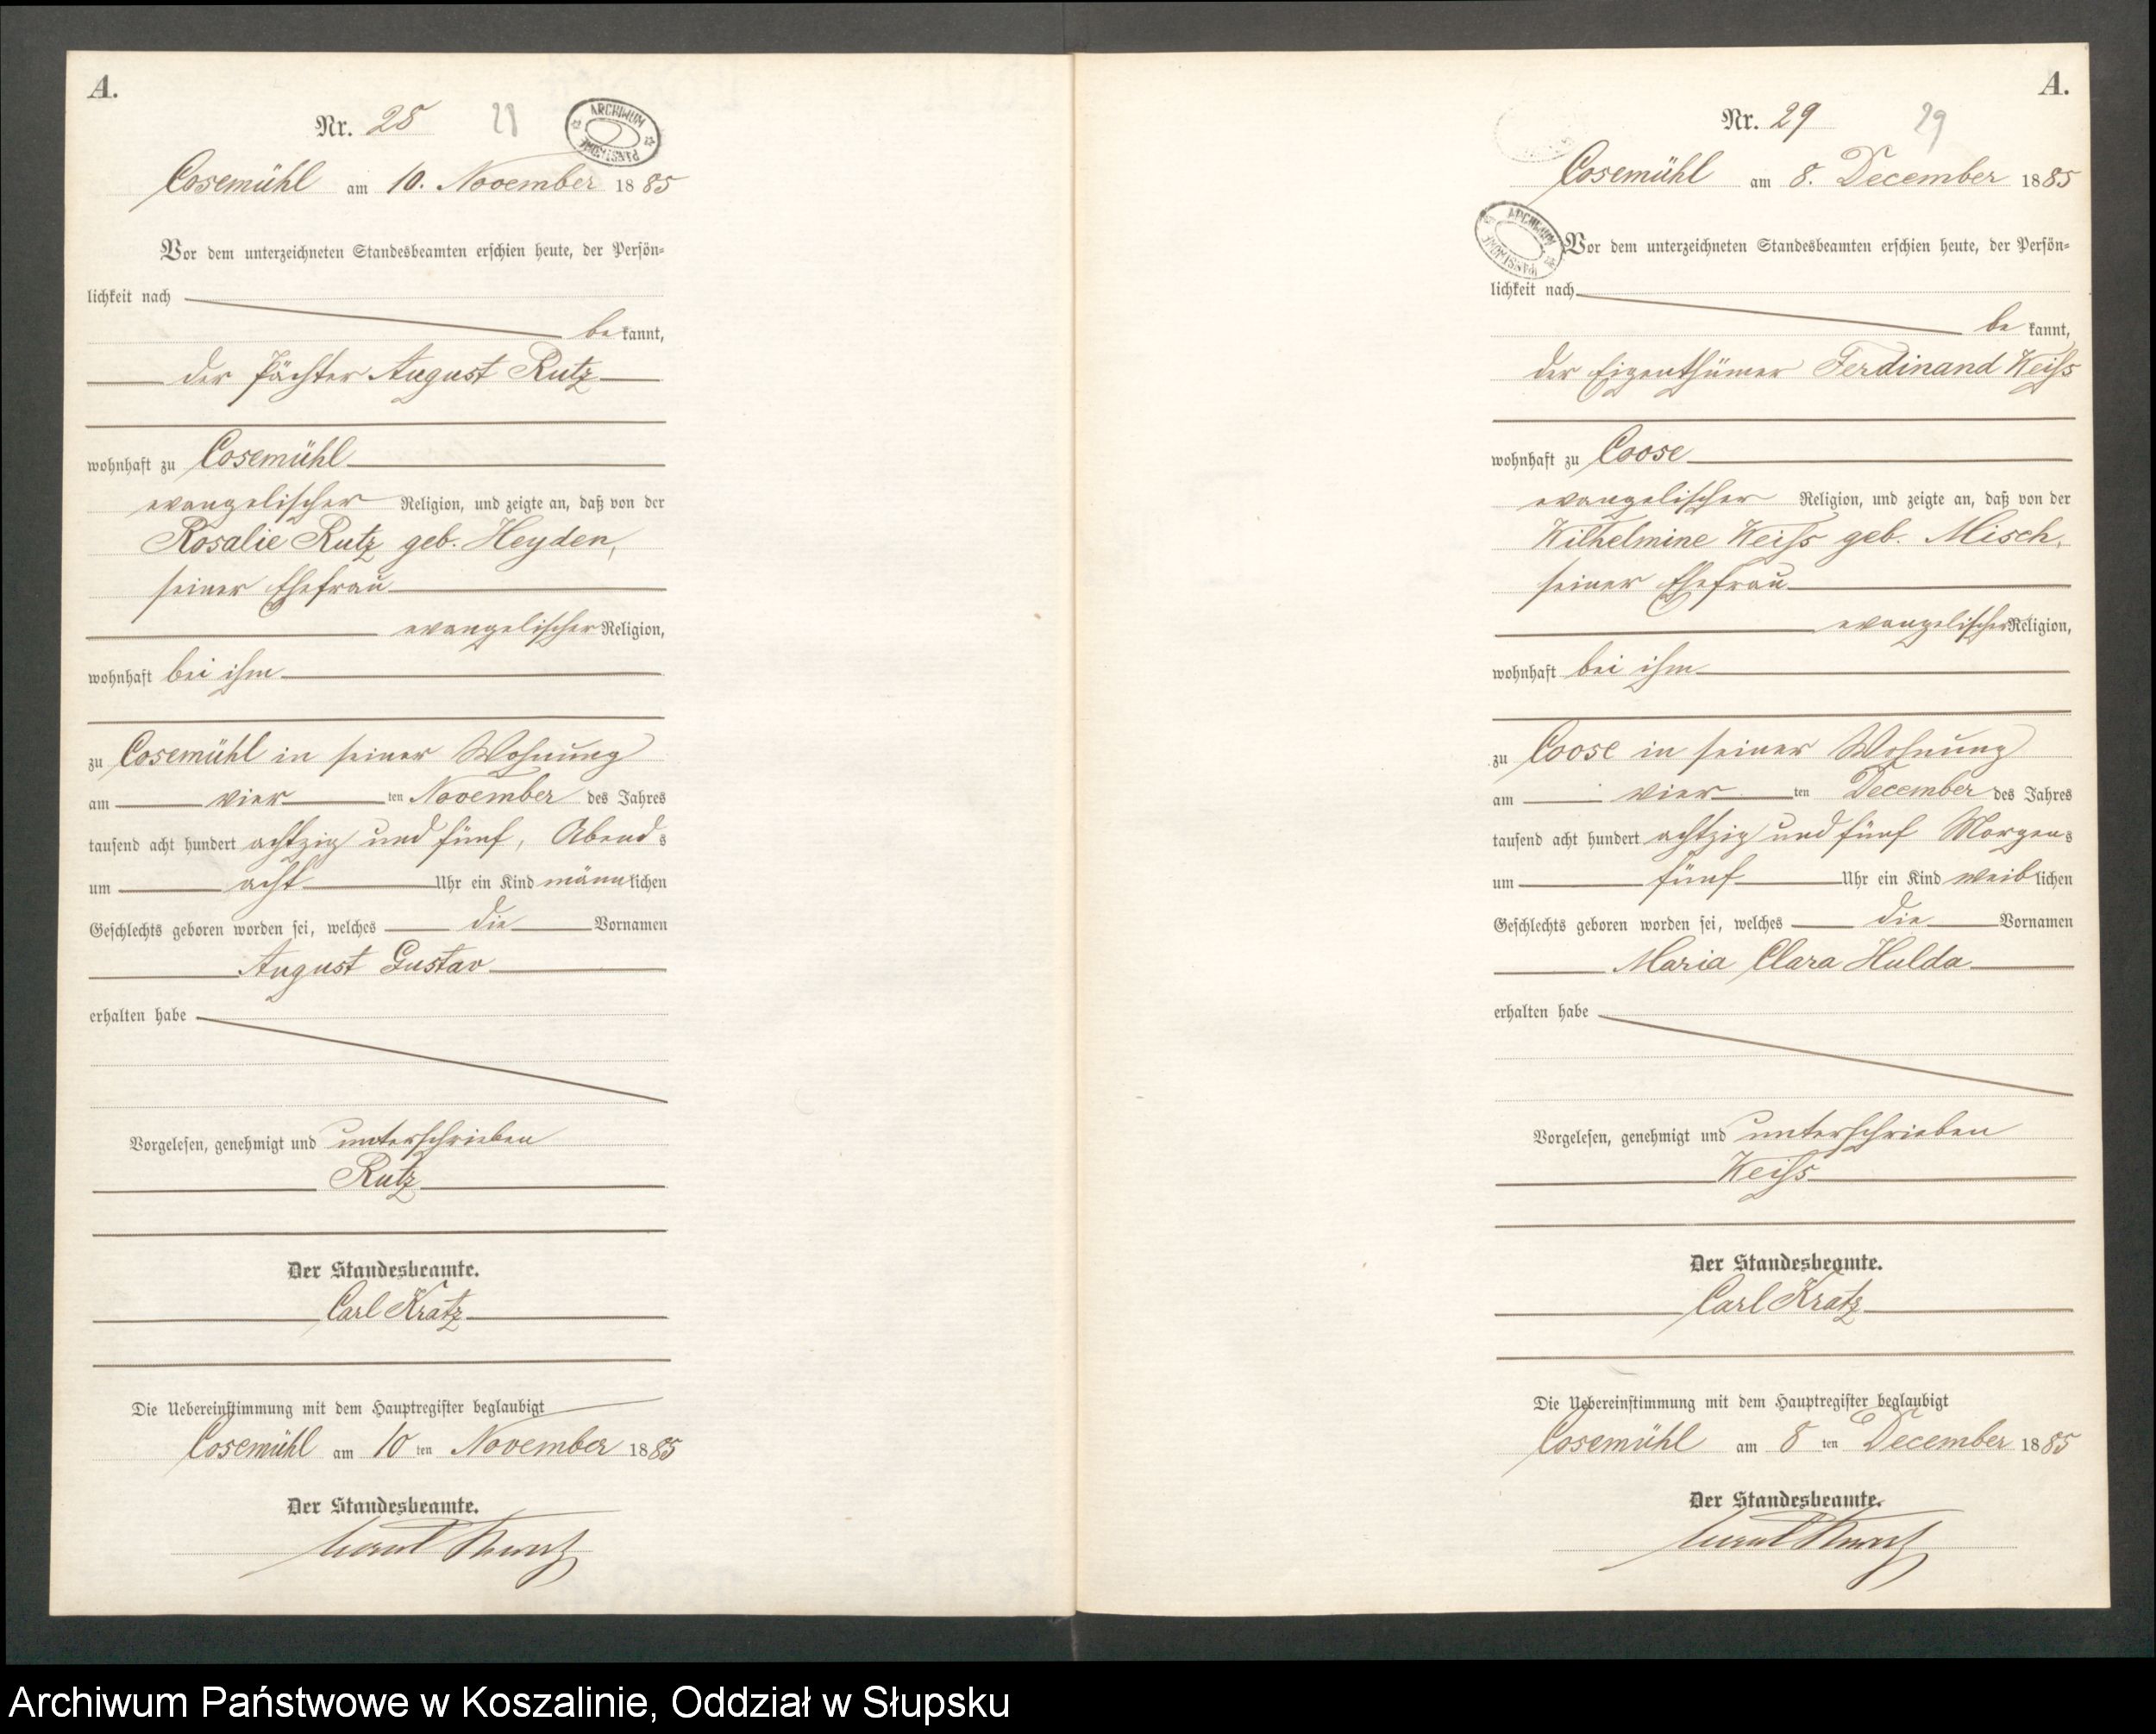 A.
Nr. 28 28
ARCHIWUM PAŃSTWOWE
Cosemühl am 10. November 1885
Vor dem unterzeichneten Standesbeamten erschien heute, der Persön-
lichkeit nach
be kannt,
der Pächter August Rutz
wohnhaft zu Cosemühl
evangelischer Religion, und zeigte an, daß von der
Rosalie Rutz geb. Heyden,
seiner Ehefrau
evangelischer Religion,
wohnhaft bei ihm
zu Cosemühl in seiner Wohnung
am vier ten November des Jahres
tausend acht hundert achtzig und fünf, Abends
um acht Uhr ein Kind männlichen
Geschlechts geboren worden sei, welches die Vornamen
August Gustav
erhalten habe
Vorgelesen, genehmigt und unterschrieben
Rutz
Der Standesbeamte.
Carl Kratz
Die Uebereinstimmung mit dem Hauptregister beglaubigt
Cosemühl am 10 ten November 1885
Der Standesbeamte.
A.
Nr. 29 29
Cosemühl am 8. December 1885
ARCHIWUM PAŃSTWOWE
Vor dem unterzeichneten Standesbeamten erschien heute, der Persön-
lichkeit nach
be kannt,
der Eigenthümer Ferdinand Weiss
wohnhaft zu Coose
evangelischer Religion, und zeigte an, daß von der
Wilhelmine Weiss geb. Misch,
seiner Ehefrau
evangelischer Religion,
wohnhaft bei ihm
zu Coose in seiner Wohnung
am vier ten December des Jahres
tausend acht hundert achtzig und fünf Morgens
um fünf Uhr ein Kind weiblichen
Geschlechts geboren worden sei, welches die Vornamen
Maria Clara Hulda
erhalten habe
Vorgelesen, genehmigt und unterschrieben
Weiss
Der Standesbeamte.
Carl Kratz
Die Uebereinstimmung mit dem Hauptregister beglaubigt
Cosemühl am 8 ten December 1885
Der Standesbeamte.
Archiwum Państwowe w Koszalinie, Oddział w Słupsku